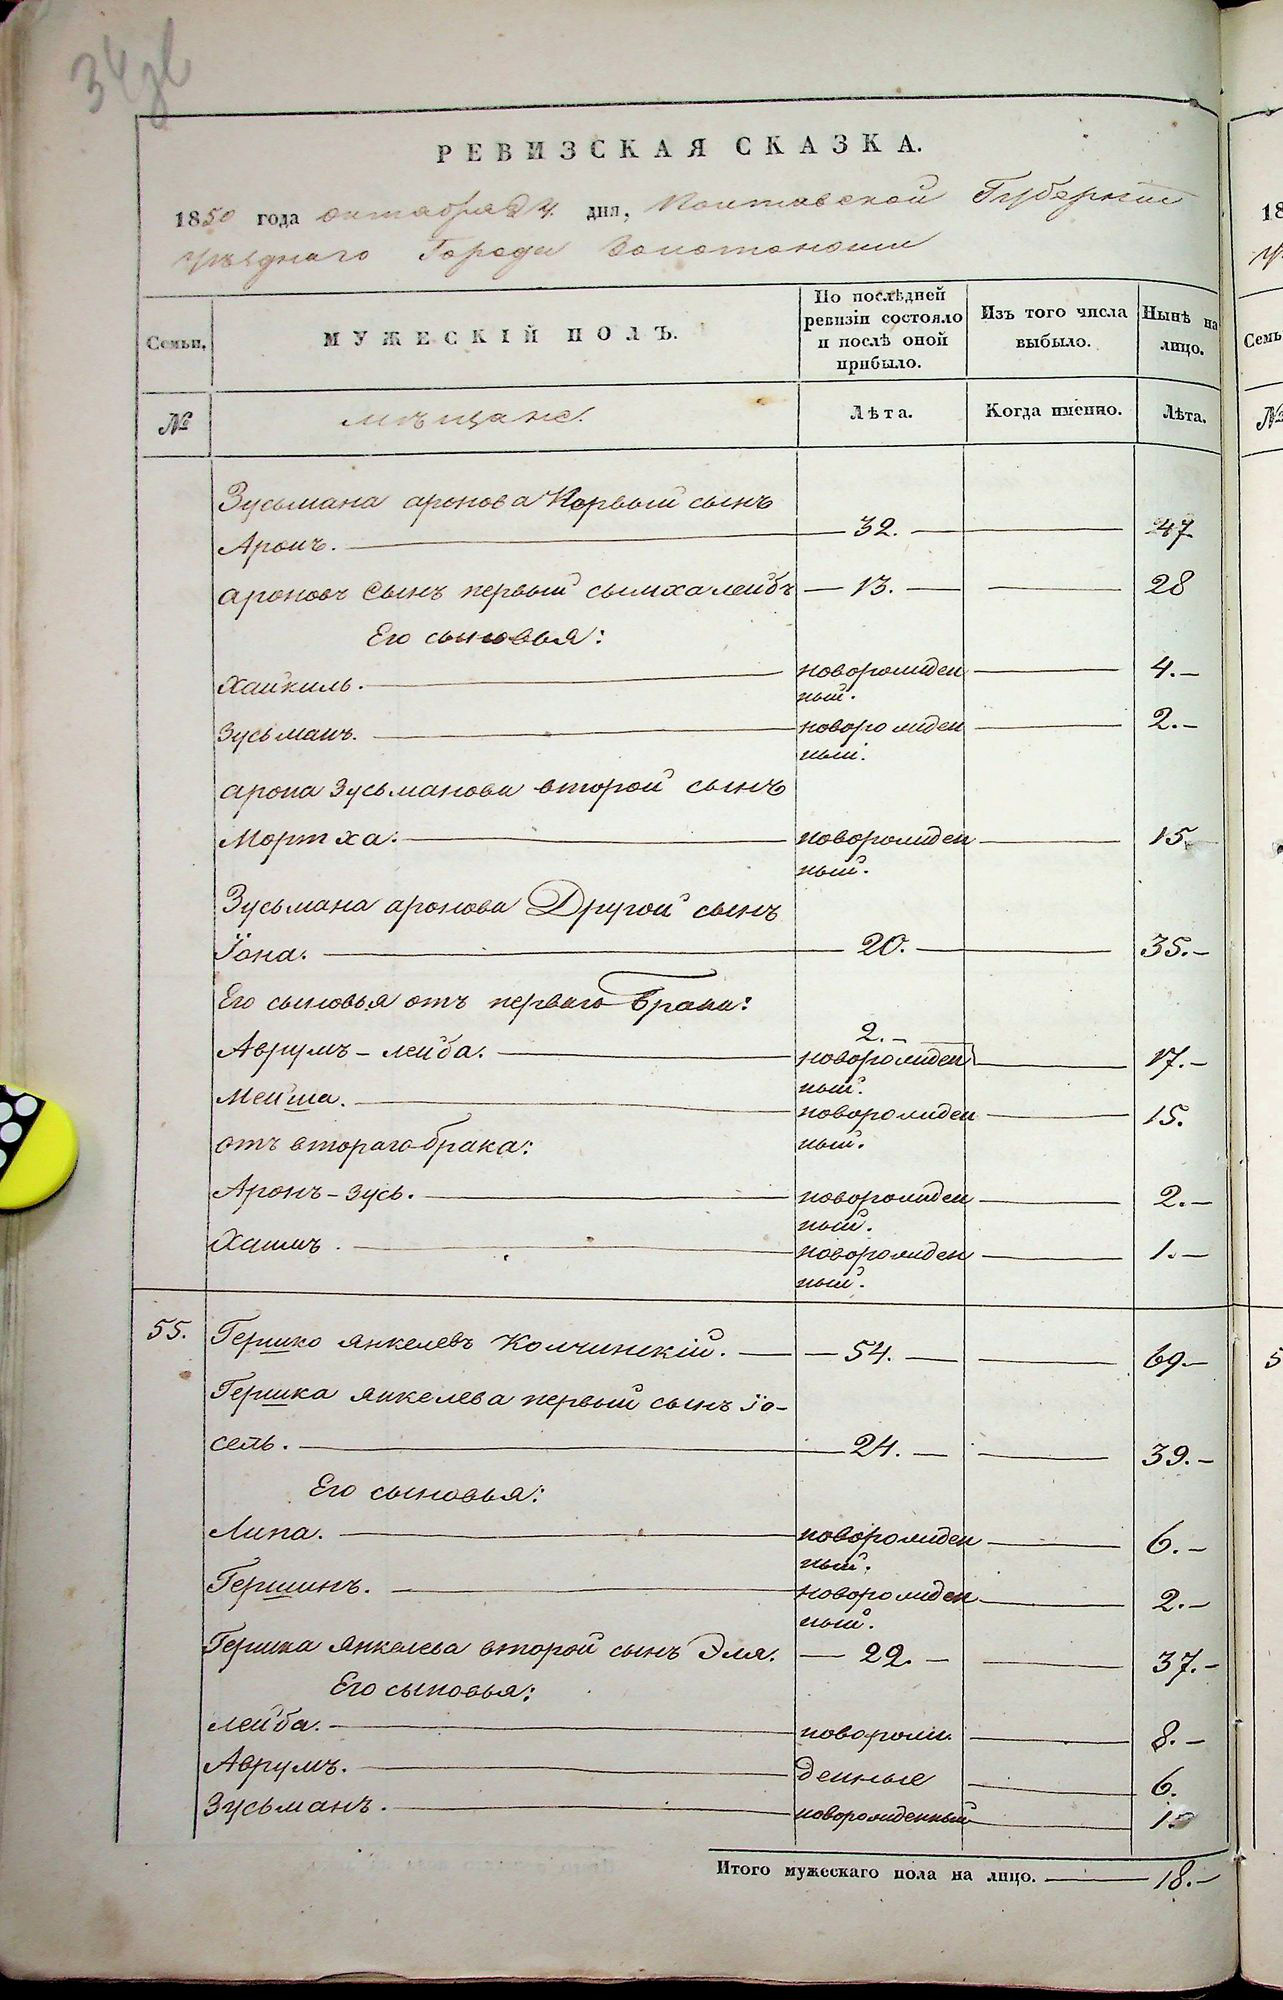 34об
РЕВИЗСКАЯ СКАЗКА.
1850 года октября 24. дня, Полтавской Губернии
уѣзднаго Города Золотоноши
Семьи. МУЖЕСКІЙ ПОЛЪ. По послѣдней ревизіи состояло и послѣ оной прибыло. Изъ того числа выбыло. Нынѣ на лицо.
№ мѣщане. Лѣта. Когда именно. Лѣта.
Зусьмана аронова Первый сынъ
Аронъ. 32. 47
ароновъ сынъ первый сымхалейбъ 13. 28
Его сыновья:
Хайкиль. новорожден 4.
ный.
Зусьманъ. новорожден 2.
ный.
арона Зусьманова второй сынъ
Мортха. новорожден 15.
ный.
Зусьмана аронова Другой сынъ
Їона. 20. 35.
Его сыновья отъ перваго брака:
2.
Аврумъ-лейба. новорожден 17.
ный.
Мейша. новорожден 15.
отъ втораго брака: ный.
Аронъ-Зусь. новорожден 2.
ный.
Хаимъ. новорожден 1.
ный.
55. Гершко Янкелевъ Колчинскій. 54. 69
Гершка Янкелева первый сынъ їо-
сель. 24. 39.
Его сыновья:
Липа. новорожден 6.
ный.
Гершинъ. новорожден 2.
ный.
Гершка Янкелева второй сынъ Эля. 22. 37.
Его сыновья:
лейба. новорож 8.
Аврумъ. денные 6.
Зусьманъ. новорожденный 1
Итого мужескаго пола на лицо. 18.